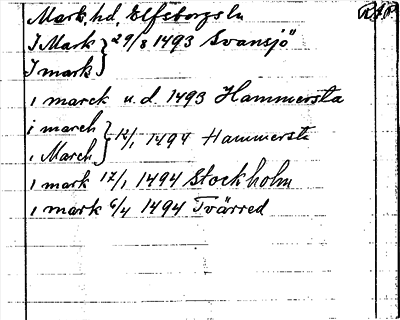 Mark, hd, Elfsborgs ln
I Mark } 29/8 1493 Svansjö
I mark
i marck u.d. 1493 Hammersta
i march } 12/1 1494 Hammersta
i March
i mark 17/1 1494 Stockholm
i mark 6/4 1494 Tvärred